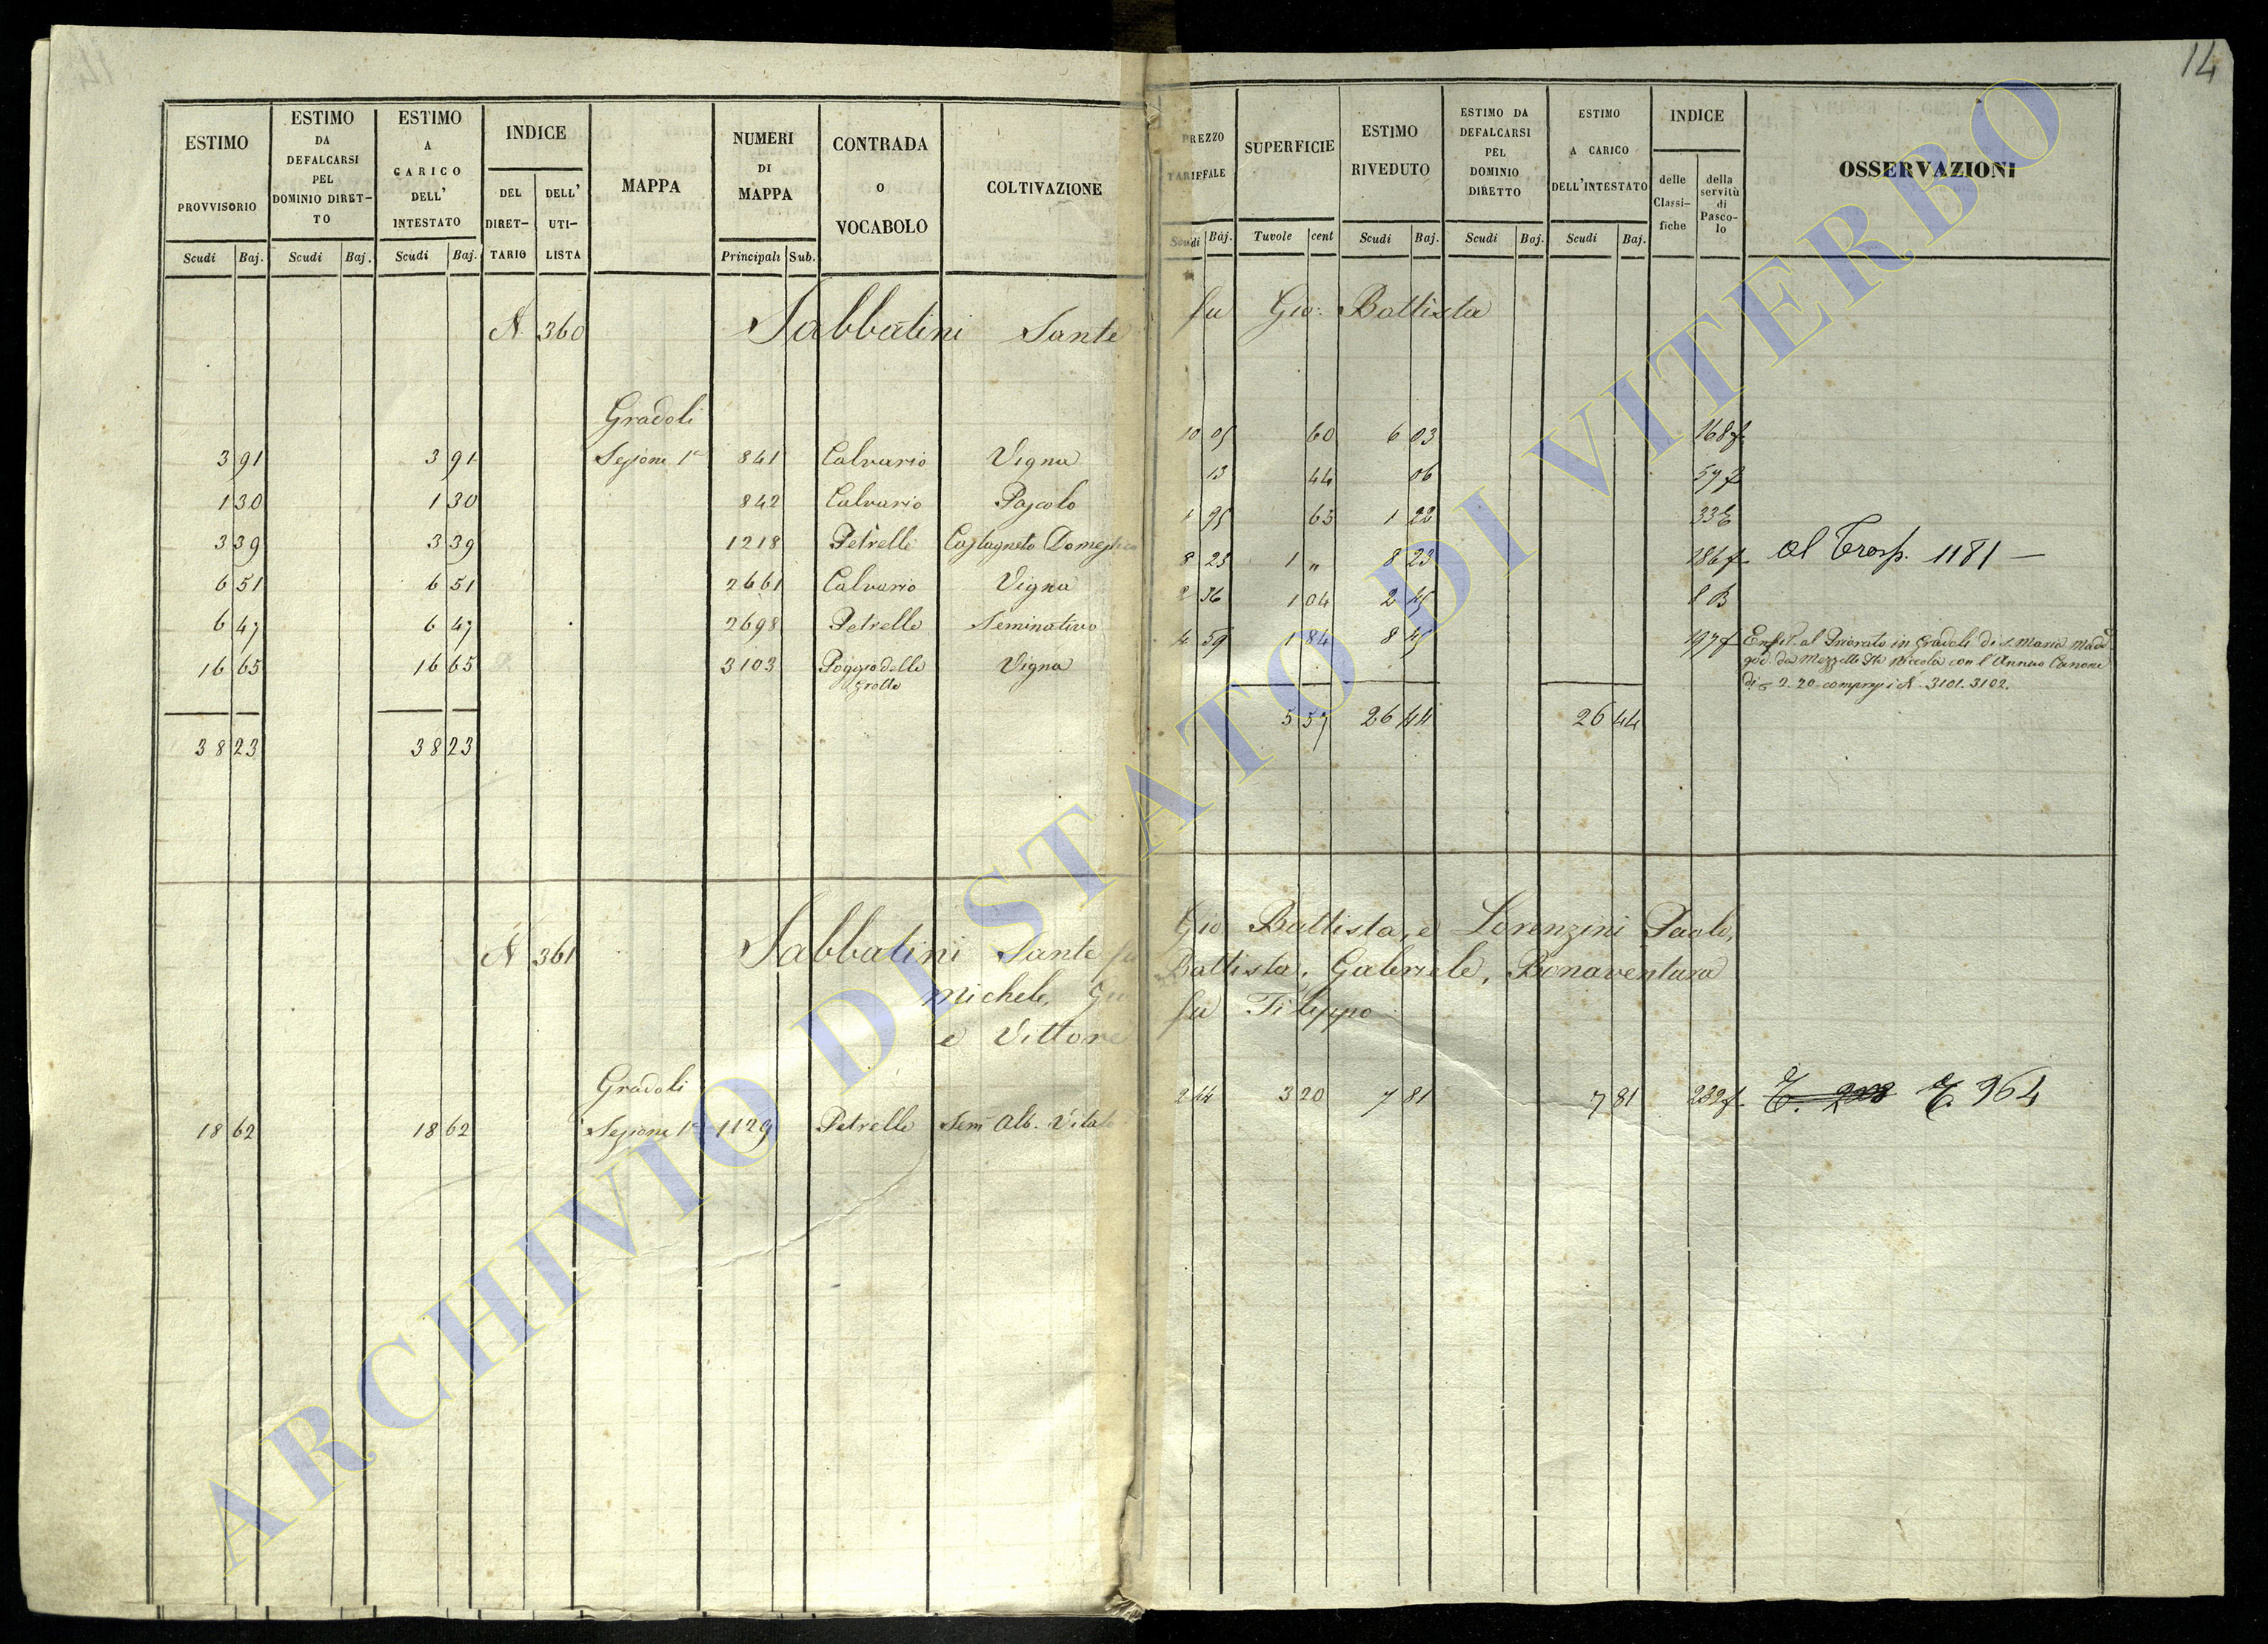 14
ESTIMO PROVVISORIO | ESTIMO DA DEFALCARSI PEL DOMINIO DIRET-TO | ESTIMO A CARICO DELL' INTESTATO | INDICE DEL DIRET-TARIO | DELL' UTI-LISTA | MAPPA | NUMERI DI MAPPA | CONTRADA O VOCABOLO | COLTIVAZIONE | PREZZO TARIFFALE | SUPERFICIE | ESTIMO RIVEDUTO | ESTIMO DA DEFALCARSI PEL DOMINIO DIRETTO | ESTIMO A CARICO DELL'INTESTATO | INDICE delle Classi-fiche | della servitù di Pasco-lo | OSSERVAZIONI
Scudi Baj. Scudi Baj. Scudi Baj. Principali Sub. Scudi Baj. Tavole cent Scudi Baj. Scudi Baj. Scudi Baj.
N 360 Sabbatini Sante fu Gio: Battista
Gradoli
3 91 3 91 Sezione 1a 841 Calvario Vigna 10 05 60 6 03 168 f
1 30 1 30 842 Calvario Pascolo 13 44 06 59 f
3 39 3 39 1218 Petrelle Castagneto Domestico 1 95 65 1 22 33 E
6 51 6 51 2661 Calvario Vigna 8 23 1 " 8 23 186 f al Trasp. 1181 —
6 47 6 47 2698 Petrelle Seminativo 2 36 1 04 2 45 8 B
16 65 16 65 3103 Poggio delle Grotte Vigna 4 59 1 84 8 45 197 f Enfit. al Priorato in Gradoli di S. Maria Madd.
god. da Mezzetti Nicola con l'Annuo Canone
di 2. 20 compresi i N. 3101. 3102.
38 23 38 23 5 57 26 44 26 44
N 361 Sabbatini Sante fu Gio Battista, e Lorenzini Paolo,
Michele, Gio Battista, Gabriele, Bonaventura
e Vittore fu Filippo
Gradoli
18 62 18 62 Sezione 1a 1129 Petrelle Sem Alb. Vitato 2 44 3 20 7 81 7 81 232 f T. 964
ARCHIVIO DI STATO DI VITERBO